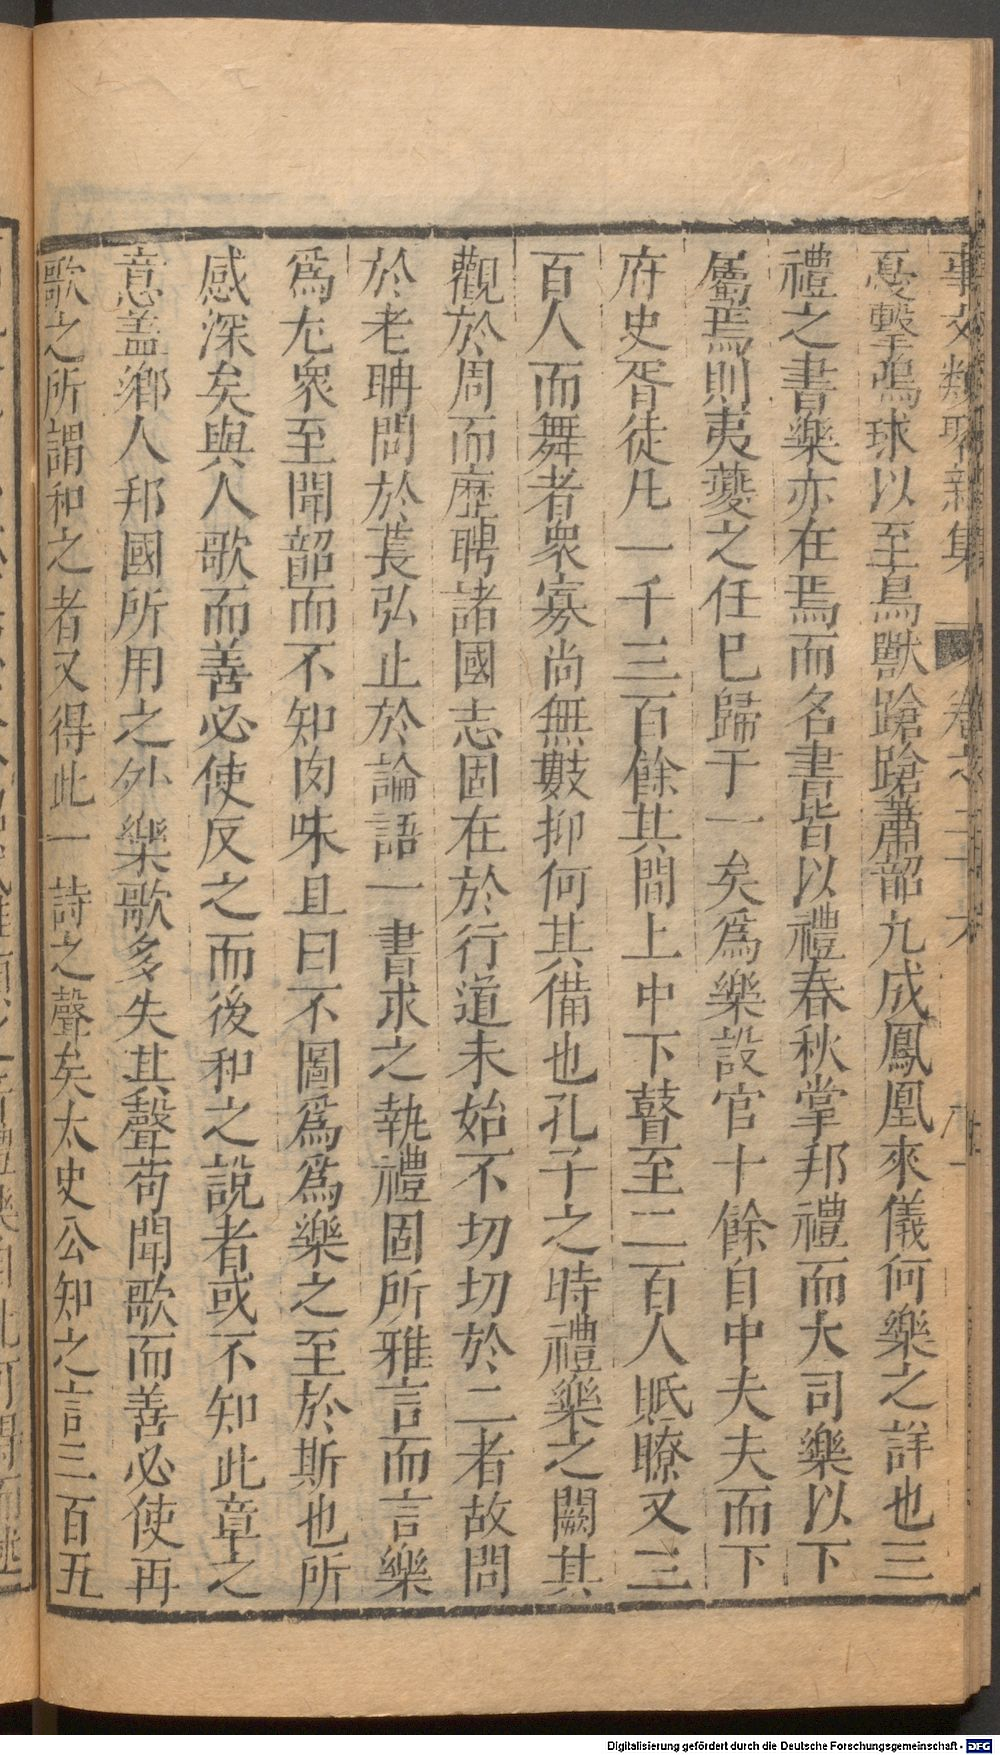 事文類聚新集 卷之三十六
戛擊鳴球以至鳥獸蹌蹌蕭韶九成鳳凰來儀何樂之詳也三
禮之書樂亦在焉而名書皆以禮春秋掌邦禮而大司樂以下
屬焉則夷夔之任已歸于一矣爲樂設官十餘自中夫夫而下
府史胥徒凡一千三百餘其間上中下瞽至二百人眡瞭又三
百人而舞者衆寡尚無數抑何其備也孔子之時禮樂之闕其
觀於周而歷聘諸國志固在於行道未始不切切於二者故問
於老聃問於萇弘止於論語一書求之執禮固所雅言而言樂
爲尢衆至聞韶而不知肉味且曰不圖爲爲樂之至於斯也所
感深矣與人歌而善必使反之而後和之說者或不知此章之
意盖鄉人邦國所用之外樂歌多失其聲苟聞歌而善必使再
歌之所謂和之者又得此一詩之聲矣太史公知之言三百五
Digitalisierung gefördert durch die Deutsche Forschungsgemeinschaft - DFG